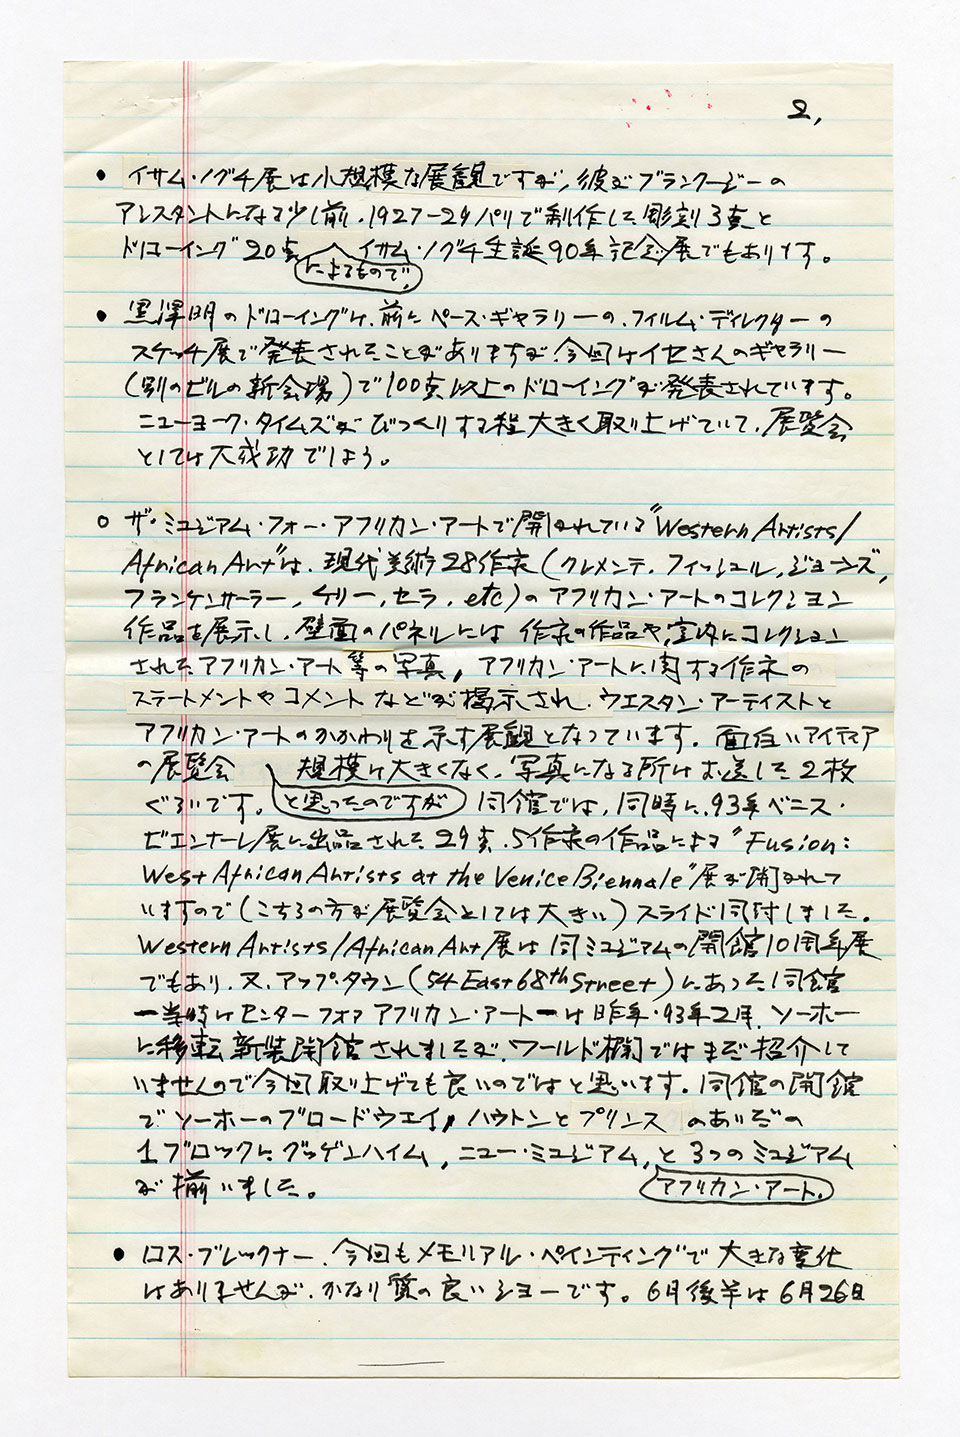 2,
• イサム・ノグチ展は小規模な展観ですが、彼がブランクージーの
アシスタントになる少し前、1927-29パリで制作した彫刻3点と
ドローイング20点によるもので、イサム・ノグチ生誕90年記念展でもあります。
• 黒澤明のドローイングは、前にペース・ギャラリーの、フィルム・ディレクターの
スケッチ展で発表されたことがありますが、今回はイセさんのギャラリー
(別のビルの新会場)で100点以上のドローイングが発表されています。
ニューヨーク・タイムズがびっくりする程大きく取り上げていて、展覧会
としては大成功でしょう。
○ ザ・ミュジアム・フォー・アフリカン・アートで開かれている"Western Artists/
African Art"は、現代美術28作家(クレメンテ、フィッシュル、ジョーンズ、
フランケンサーラー、ケリー、セラ、etc)のアフリカン・アートのコレクション
作品を展示し、壁面のパネルには作家の作品や、室内にコレクション
されたアフリカン・アート等の写真、アフリカン・アートに関する作家の
ステートメントやコメントなどが掲示され、ウエスタン・アーティストと
アフリカン・アートのかかわりを示す展観となっています。面白いアイディア
の展覧会と思ったのですが規模は大きくなく、写真になる所はお送りした2枚
ぐらいです。同館では、同時に、93年ベニス・
ビエンナーレ展に出品された29点、5作家の作品による"Fusion:
West African Artists at the Venice Biennale"展が開かれて
いますので(こちらの方が展覧会としては大きい)スライド同封しました。
Western Artists/African Art展は同ミュジアムの開館10周年展
でもあり、又、アップ・タウン(54 East 68th Street)にあった同館
ー当時はセンターフォア アフリカン・アートーは昨年・93年2月、ソーホー
に移転新装開館されましたが、ワールド欄ではまだ紹介して
いませんので今回取り上げても良いのではと思います。同館の開館
で ソーホーのブロードウエイ、ハウトンとプリンスのあいだの
1ブロックに、グッゲンハイム、ニュー・ミュジアム、アフリカン・アート、と3つのミュジアム
が揃いました。
• ロス・ブレックナー、今回もメモリアル・ペインティングで大きな変化
はありませんが、かなり質の良いショーです。6月後半は6月26日